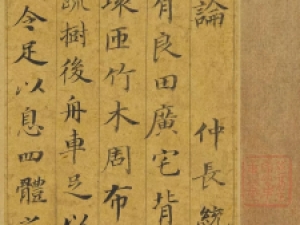 論 仲長統
有良田廣宅背
環匝竹木周布
樹後舟車足以
令足以息四體